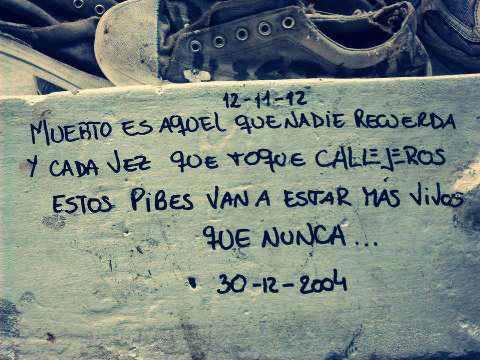 12-11-12
MUERTO ES AQUEL QUE NADIE RECUERDA
Y CADA VEZ QUE TOQUE CALLEJEROS
ESTOS PIBES VAN A ESTAR MAS VIVOS
QUE NUNCA...
30-12-2004